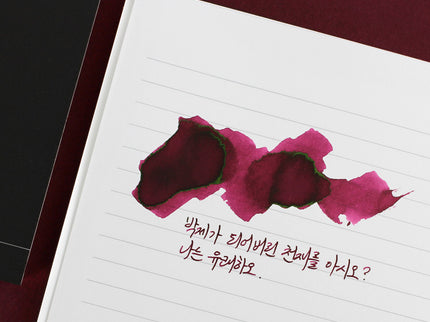 박제가 되어버린 천재를 아시오?
나는 유쾌하오.